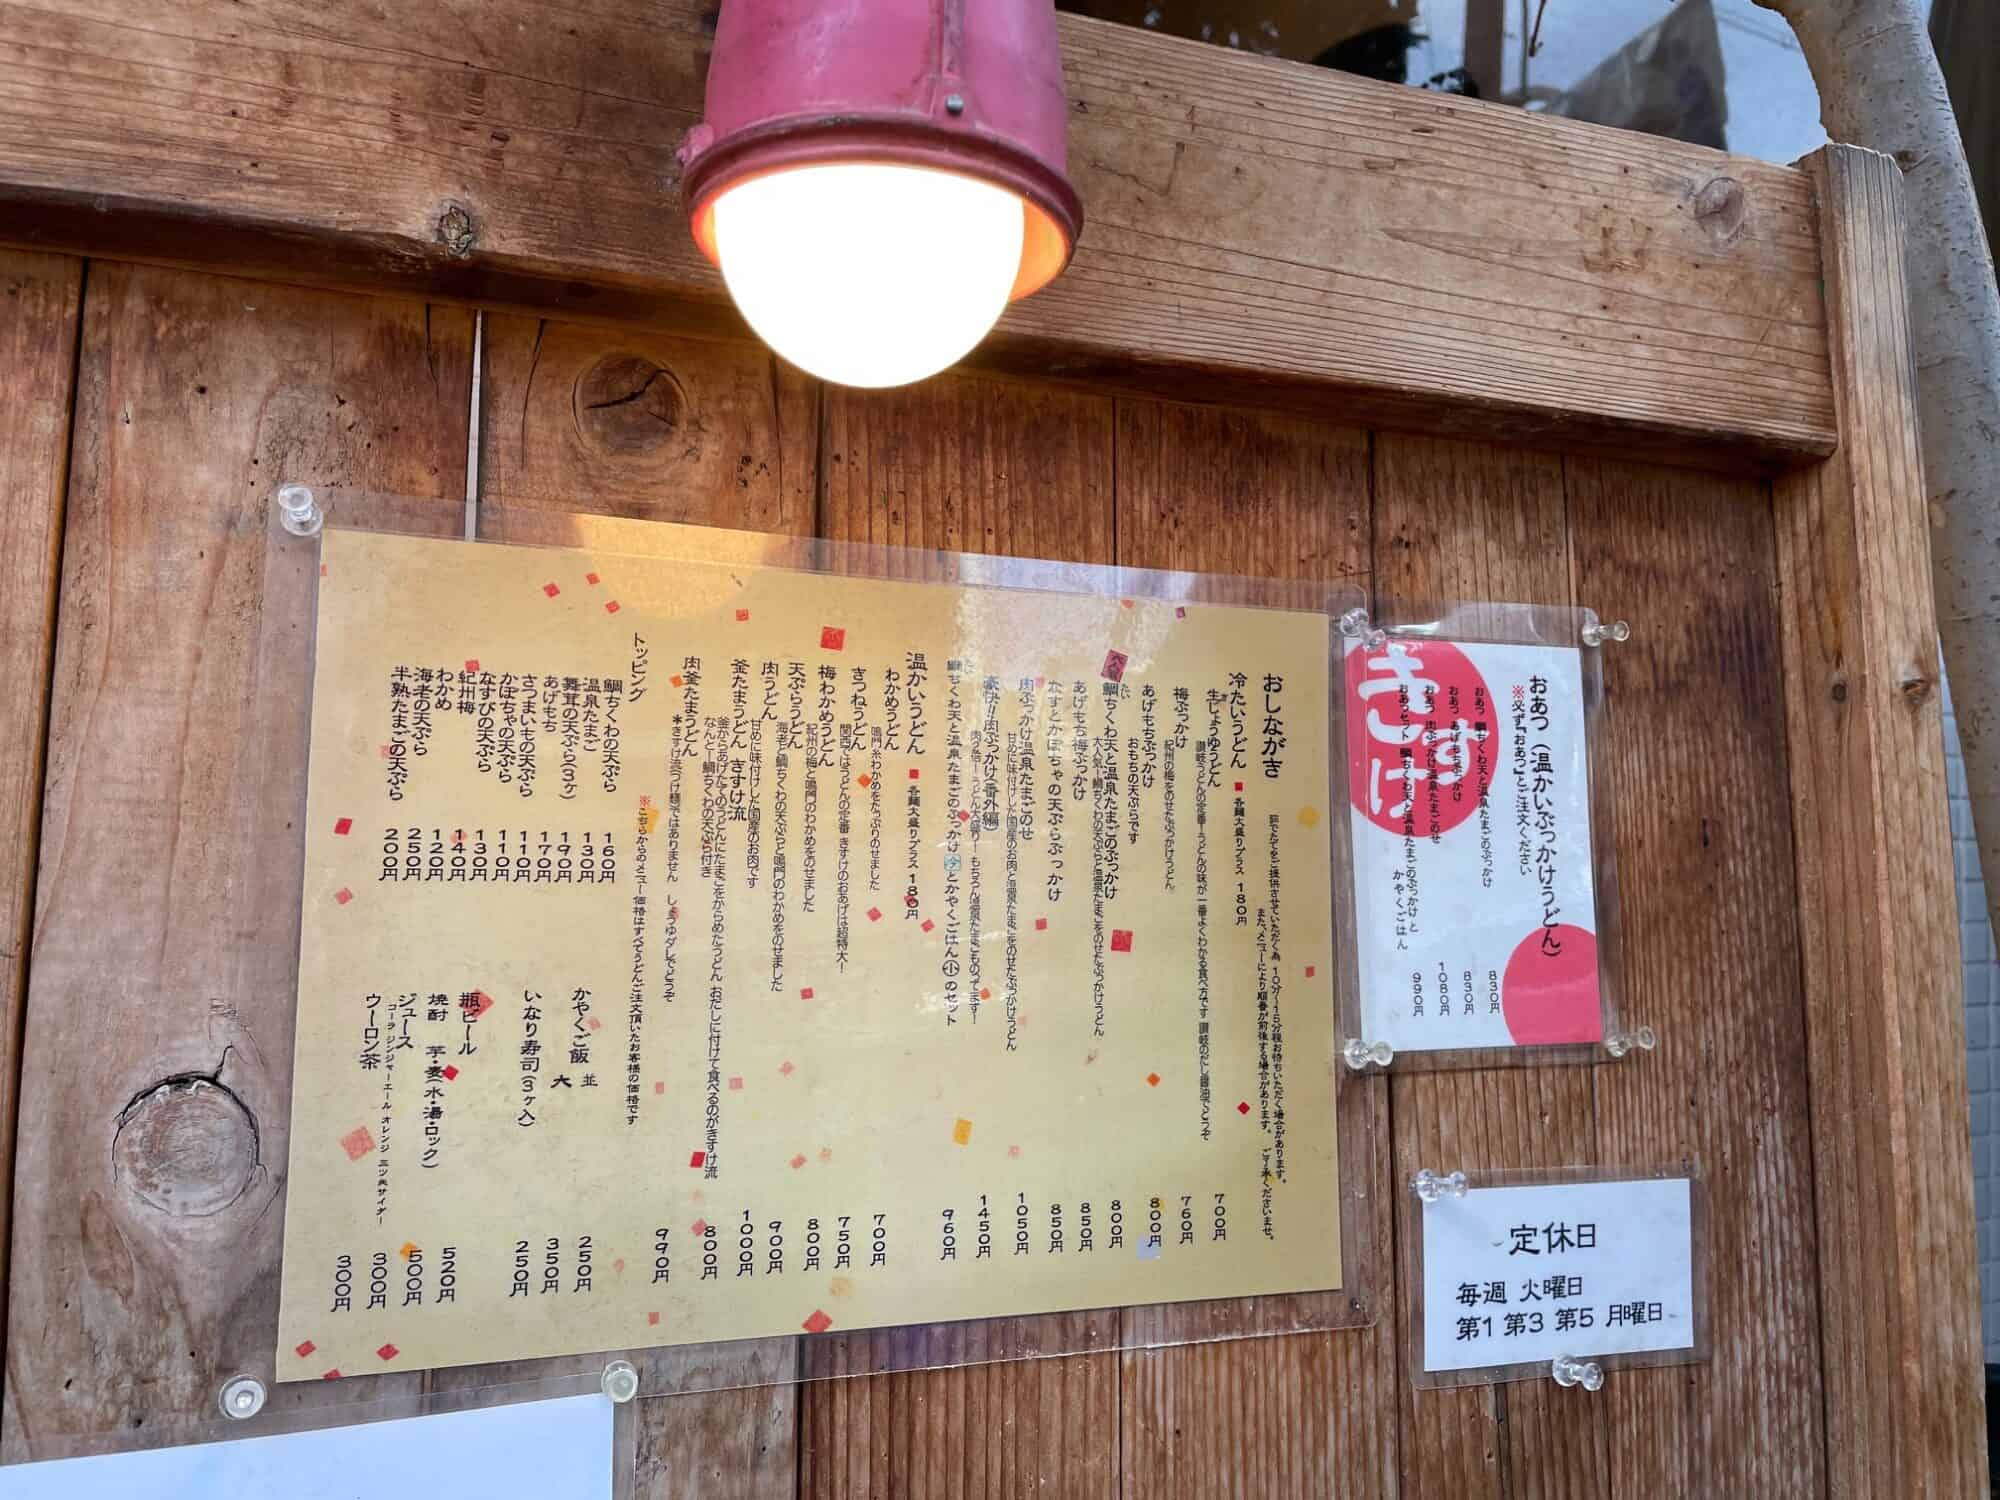 おしながき
茹でたてをご提供させていただく為 10分〜15分程お待ちいただく場合があります。
また、メニューにより順番が前後する場合があります。 ご了承くださいませ。
冷たいうどん ■ 各麺大盛りプラス 180円
生じょうゆうどん 700円
讃岐うどんの定番!うどんの味が一番よくわかる食べ方です 讃岐のだし醤油でどうぞ
梅ぶっかけ 760円
紀州の梅をのせたぶっかけうどん
あげもちぶっかけ 800円
おもちの天ぷらです
大人気
鯛ちくわ天と温泉たまごのぶっかけ 800円
大人気!鯛ちくわの天ぷらと温泉たまごをのせたぶっかけうどん
あげもち梅ぶっかけ 850円
なすとかぼちゃの天ぷらぶっかけ 850円
肉ぶっかけ温泉たまごのせ 1050円
甘めに味付けした国産のお肉と温泉たまごをのせたぶっかけうどん
豪快!!肉ぶっかけ(番外編) 1450円
肉2倍!うどん大盛り!もちろん温泉たまごものってます!
鯛ちくわ天と温泉たまごのぶっかけ 冷 とかやくごはん 小 のセット 960円
温かいうどん ■ 各麺大盛りプラス 180円
わかめうどん 700円
鳴門糸わかめをたっぷりのせました
きつねうどん 750円
関西ではうどんの定番 きすけのおあげは超特大!
梅わかめうどん 800円
紀州の梅と鳴門のわかめをのせました
天ぷらうどん 900円
海老と鯛ちくわの天ぷらと鳴門のわかめをのせました
肉うどん 1000円
甘めに味付けした国産のお肉です
釜たまうどん きすけ流 800円
釜からあげたてのうどんにたまごをからめたうどん おだしに付けて食べるのがきすけ流
なんと!鯛ちくわの天ぷら付き
肉釜たまうどん 990円
*きすけ流つけ麺ではありません しょうゆダレでどうぞ
トッピング
※こちらからのメニュー価格はすべてうどんご注文頂いたお客様の価格です
鯛ちくわの天ぷら 160円
温泉たまご 130円
舞茸の天ぷら(3ヶ) 190円
あげもち 170円
さつまいもの天ぷら 110円
かぼちゃの天ぷら 110円
なすびの天ぷら 130円
紀州梅 140円
わかめ 120円
海老の天ぷら 250円
半熟たまごの天ぷら 200円
かやくご飯 並 250円
大 350円
いなり寿司(3ヶ入) 250円
瓶ビール 520円
焼酎 芋・麦(水・湯・ロック) 500円
ジュース 300円
コーラ ジンジャーエール オレンジ 三ツ矢サイダー
ウーロン茶 300円
きすけ
おあつ(温かいぶっかけうどん)
※必ず『おあつ』とご注文ください
おあつ 鯛ちくわ天と温泉たまごのぶっかけ 830円
おあつ あげもちぶっかけ 830円
おあつ 肉ぶっかけ温泉たまごのせ 1080円
おあつセット 鯛ちくわ天と温泉たまごのぶっかけと
かやくごはん 990円
定休日
毎週 火曜日
第1 第3 第5 月曜日